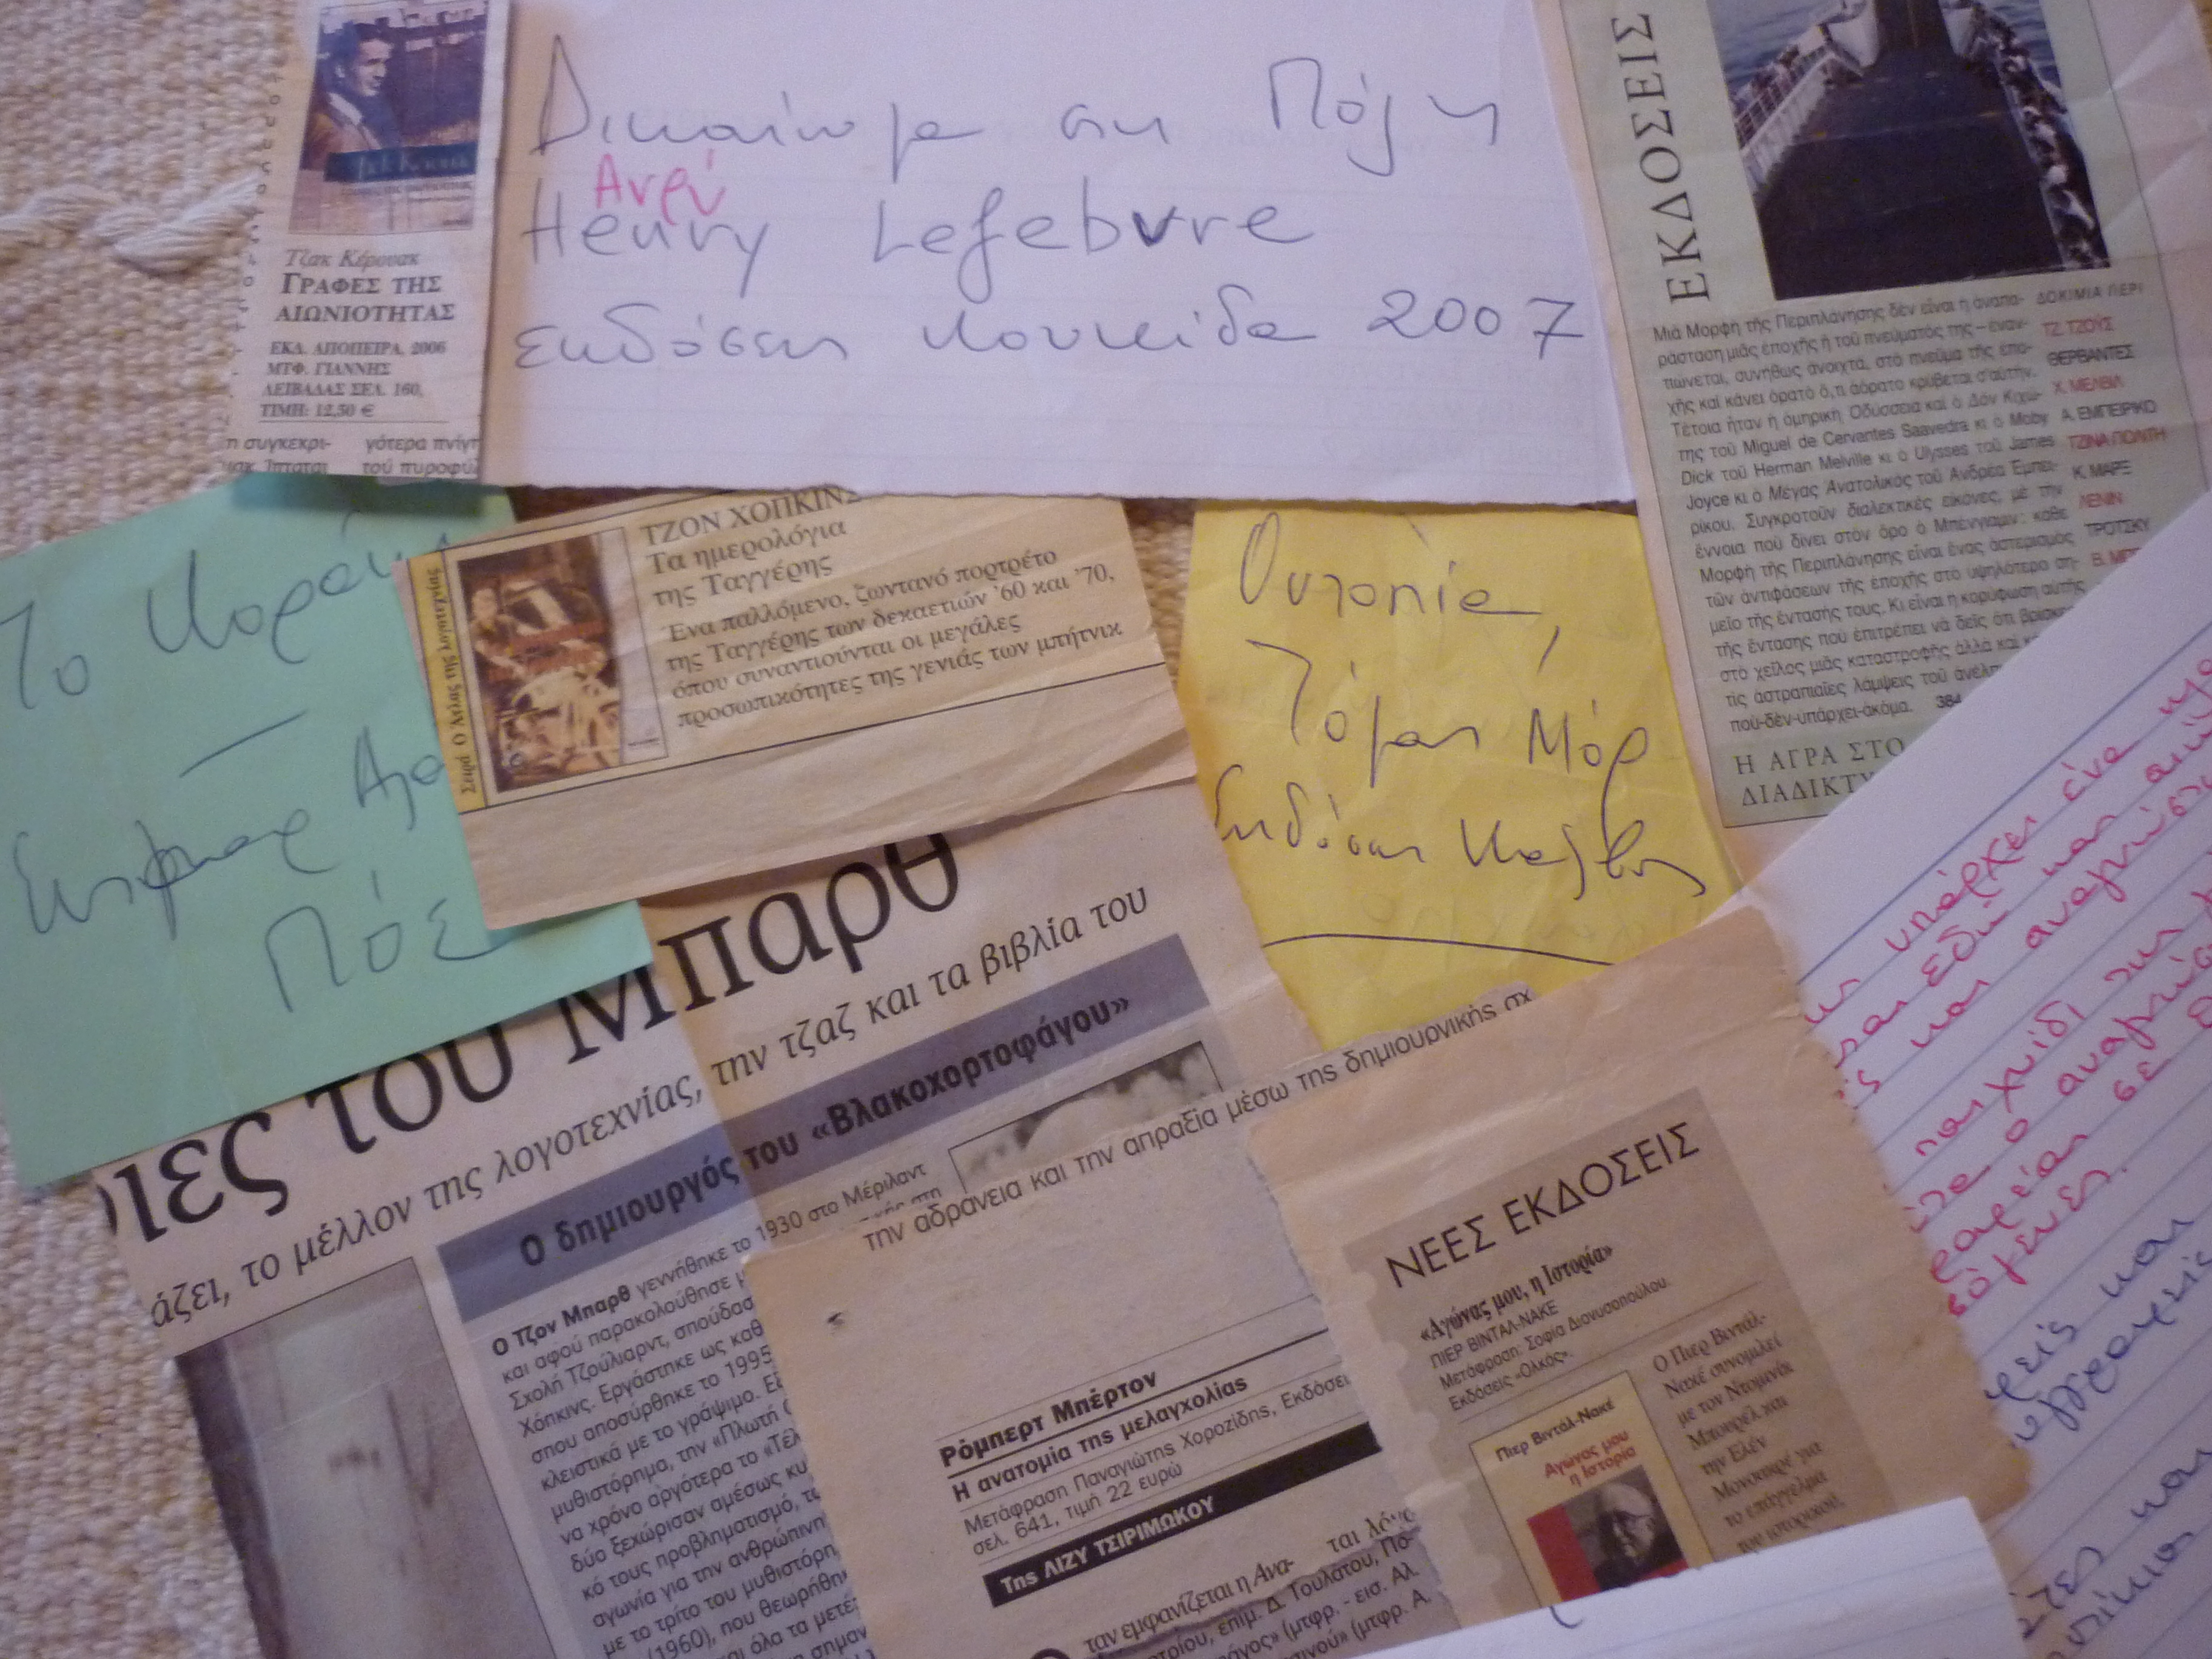 Τζακ Κέρουακ
ΓΡΑΦΕΣ ΤΗΣ
ΑΙΩΝΙΟΤΗΤΑΣ
ΕΚΔ. ΑΠΟΠΕΙΡΑ, 2006
ΜΤΦ. ΓΙΑΝΝΗΣ
ΛΕΙΒΑΔΑΣ ΣΕΛ. 160,
ΤΙΜΗ: 12,50 €
συγκεκρι-
γότερα
Ίπταται
τοῦ
Δικαίωμα στη Πόλη
Ανρύ
Henry Lefebvre
εκδόσεις Κουκκίδα 2007
ΕΚΔΟΣΕΙΣ
Μιὰ Μορφὴ τῆς Περιπλάνησης δὲν εἶναι ἡ ἀναπα-
ράσταση μιᾶς ἐποχῆς ἢ τοῦ πνεύματός της – ἐναν-
τιώνεται, συνήθως ἀνοιχτά, στὸ πνεῦμα τῆς ἐπο-
χῆς καὶ κάνει ὁρατὸ ὅ,τι ἀόρατο κρύβεται σ'αὐτήν.
Τέτοια ἦταν ἡ ὁμηρικὴ Ὀδύσσεια καὶ ὁ Δὸν Κιχώ-
της τοῦ Miguel de Cervantes Saavedra κι ὁ Moby
Dick τοῦ Herman Melville κι ὁ Ulysses τοῦ James
Joyce κι ὁ Μέγας Ἀνατολικὸς τοῦ Ἀνδρέα Ἐμπει-
ρίκου. Συγκροτοῦν διαλεκτικὲς εἰκόνες, μὲ τὴν
ἔννοια ποὺ δίνει στὸν ὅρο ὁ Μπένγιαμιν: κάθε
Μορφὴ τῆς Περιπλάνησης εἶναι ἕνας ἀστερισμὸς
τῶν ἀντιφάσεων τῆς ἐποχῆς στὸ ὑψηλότερο ση-
μεῖο τῆς ἔντασής τους. Κι εἶναι ἡ κορύφωση αὐτῆς
τῆς ἔντασης ποὺ ἐπιτρέπει νὰ δεῖς ὅτι
στὸ χεῖλος μιᾶς καταστροφῆς ἀλλὰ καὶ
τὶς ἀστραπιαῖες λάμψεις τοῦ
ποὺ-δὲν-ὑπάρχει-ἀκόμα. 384
ΔΟΚΙΜΙΑ ΠΕΡΙ
ΤΖ. ΤΖΟΫΣ
ΘΕΡΒΑΝΤΕΣ
Χ. ΜΕΛΒΙΛ
Α. ΕΜΠΕΙΡΙΚΟ
ΤΖΙΝΑ ΠΟΛΙΤΗ
Κ. ΜΑΡΞ
ΛΕΝΙΝ
ΤΡΟΤΣΚΥ
Η ΑΓΡΑ ΣΤΟ
Το Κοράκι
Έντγκαρ Άλα
Πόε
Σειρά Ο Άτλας της Λογοτεχνίας
ΤΖΟΝ ΧΟΠΚΙΝΣ
Τα ημερολόγια
της Ταγγέρης
Ένα παλλόμενο, ζωντανό πορτρέτο
της Ταγγέρης των δεκαετιών '60 και '70,
όπου συναντιούνται οι μεγάλες
προσωπικότητες της γενιάς των μπήτνικ
Ουτοπία,
Τόμας Μόρ
Εκδόσεις Κάλβος
του Μπαρθ
το μέλλον της λογοτεχνίας, την τζαζ και τα βιβλία του
Ο δημιουργός του «Βλακοχορτοφάγου»
Ο Τζον Μπαρθ γεννήθηκε το 1930 στο Μέριλαντ
και αφού παρακολούθησε
Σχολή Τζούλιαρντ, σπούδασ
Χόπκινς. Εργάστηκε ως καθ
σπου αποσύρθηκε το 1995
κλειστικά με το γράψιμο.
μυθιστόρημα, την «Πλωτή
να χρόνο αργότερα το
δύο ξεχώρισαν αμέσως
κό τους προβληματισμό,
αγωνία για την ανθρώπινη
με το τρίτο του μυθιστόρη
(1960), που θεωρήθη
όλα τα μετέ
την αδράνεια και την απραξία μέσω της δημιουργικής
Ρόμπερτ Μπέρτον
Η ανατομία της μελαγχολίας
Μετάφραση Παναγιώτης Χοροζίδης, Εκδόσει
σελ. 641, τιμή 22 ευρώ
Της ΛΙΖΥ ΤΣΙΡΙΜΩΚΟΥ
ταν εμφανίζεται η Ανα-
επιμ. Δ. Τουλάτου,
ΝΕΕΣ ΕΚΔΟΣΕΙΣ
«Αγώνας μου, η Ιστορία»
ΠΙΕΡ ΒΙΝΤΑΛ-ΝΑΚΕ
Μετάφραση: Σοφία Διονυσοπούλου.
Εκδόσεις «Ολκός».
Πιερ Βιντάλ-Νακέ
Αγώνας μου
η Ιστορία
Ο Πιερ Βιντάλ-
Νακέ συνομιλεί
με τον Ντομινίκ
Μπουρέλ και
την Ελέν
Μονσακρέ για
το επάγγελμα
του ιστορικού.
υπάρχει ένα
εδώ και
και
παιχνίδι της
ο
σε
και